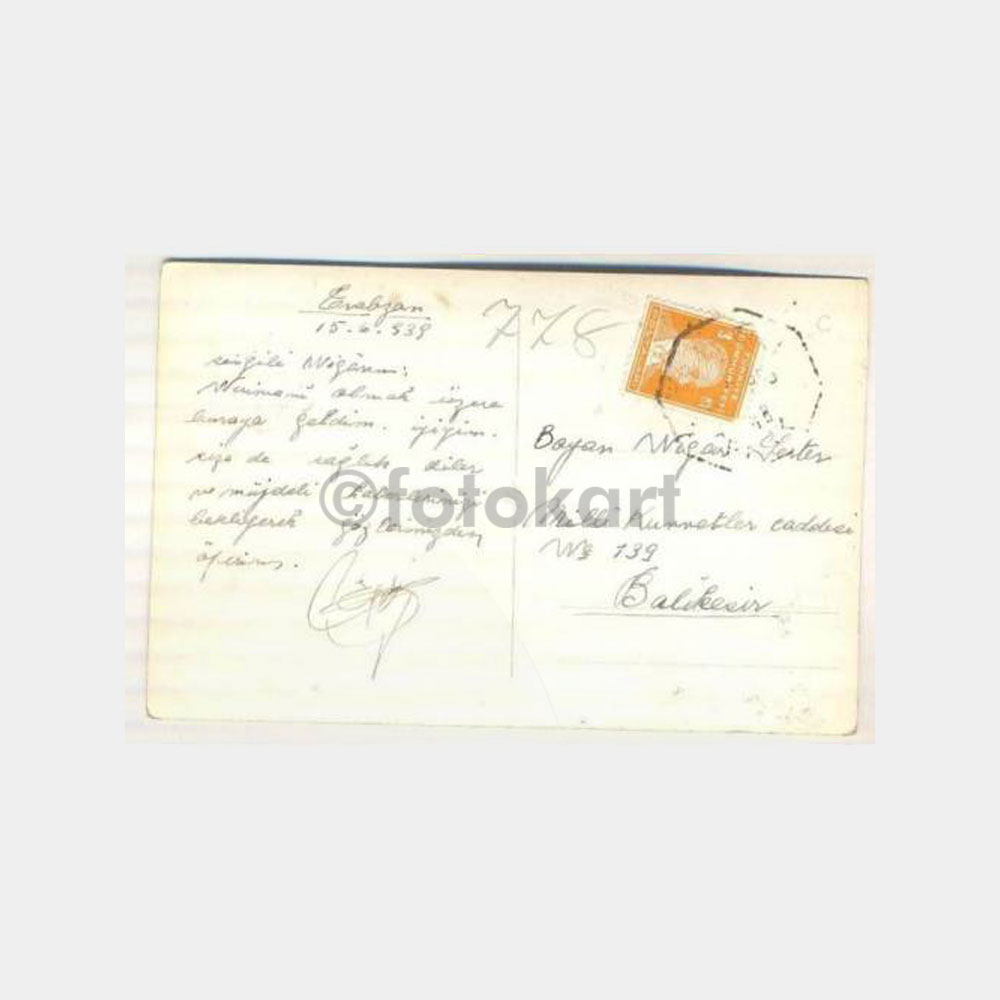 Trabzon
15.6.939
778
sevgili Nigârım:
olmak üzere
buraya geldim. iyiyim.
size de sağlık diler
ve müjdeli
bekliyerek gözlerinizden
öperim.
Bayan Nigâr
Milli Kuvvetler caddesi
No 139
Balıkesir
©fotokart